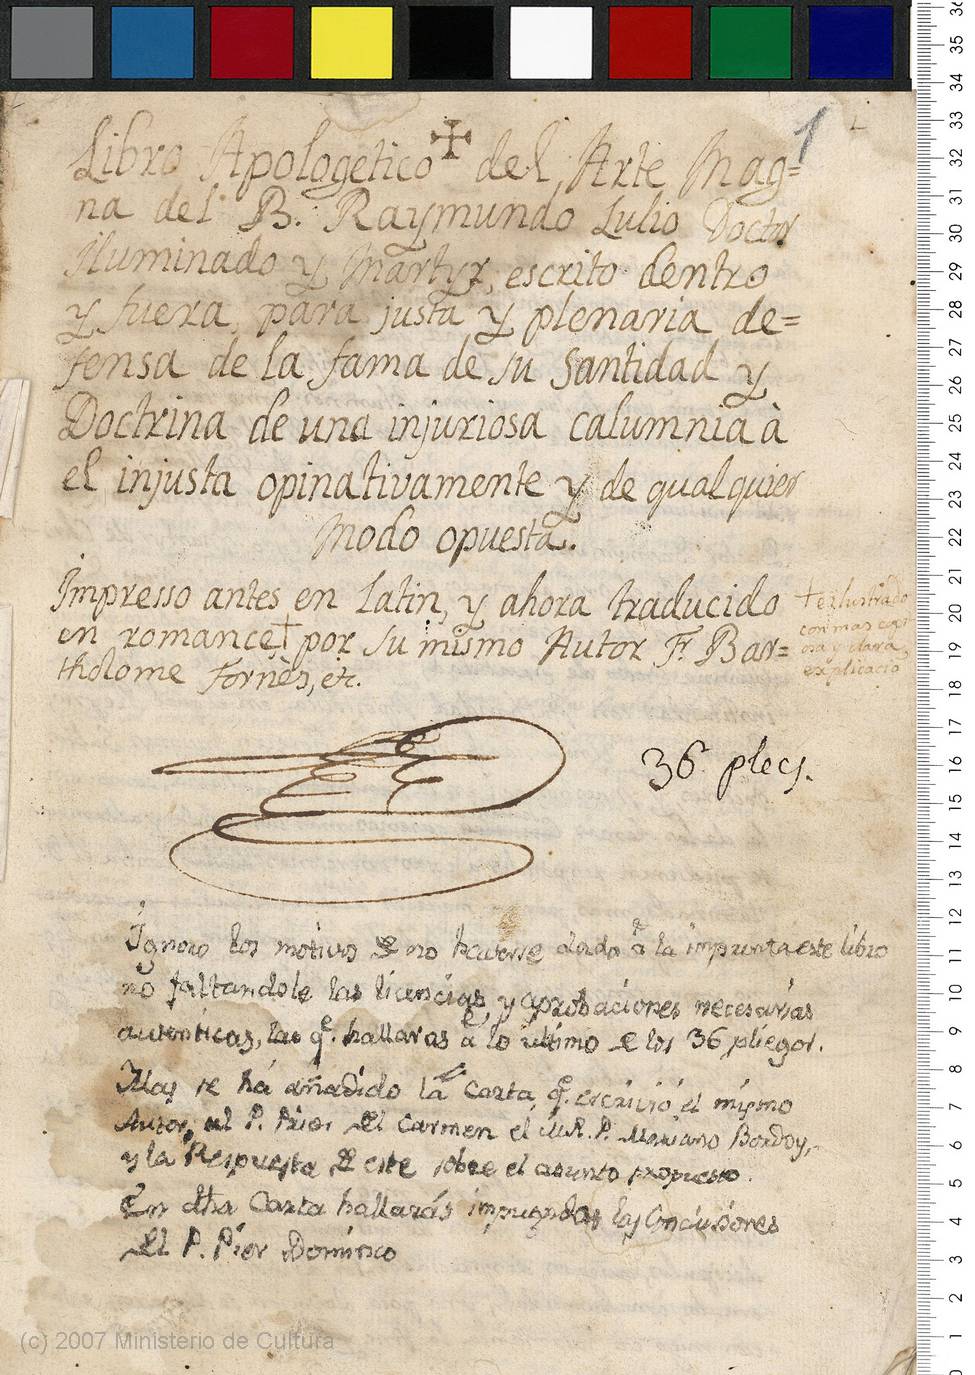 1
Libro Apologetico del Arte Mag=
na del B. Raymundo Lulio Doctor
Iluminado y Martyr, escrito dentro
y fuera, para justa y plenaria de=
fensa de la fama de su Santidad y
Doctrina de una injuriosa calumnia à
el injusta opinativamente y de qualquier
modo opuesta.
Impresso antes en Latin, y ahora traducido
en romance,† por su mismo Autor Fr. Bar=
tholome Fornès, etc.
† e ilustrado
con mas copi
osa y clara
explicacio
36 plecs.
Ignoro los motivos de no haverse dado a la imprenta este libro
no faltandole las licencias, y aprobaciones necesarias
autenticas, las q. hallaras a lo ultimo de los 36 pliegos.
Mas se há añadido la Carta q. escrivió el mismo
Autor, al P. Prior del Carmen el M.R.P. Mariano Bordoy,
y la Respuesta de este sobre el asunto propuesto.
En dha Carta hallarás impugndas las
del P. Domínico
(c) 2007 Ministerio de Cultura
36
35
34
33
32
31
30
29
28
27
26
25
24
23
22
21
20
19
18
17
16
15
14
13
12
11
10
9
8
7
6
5
4
3
2
1
0